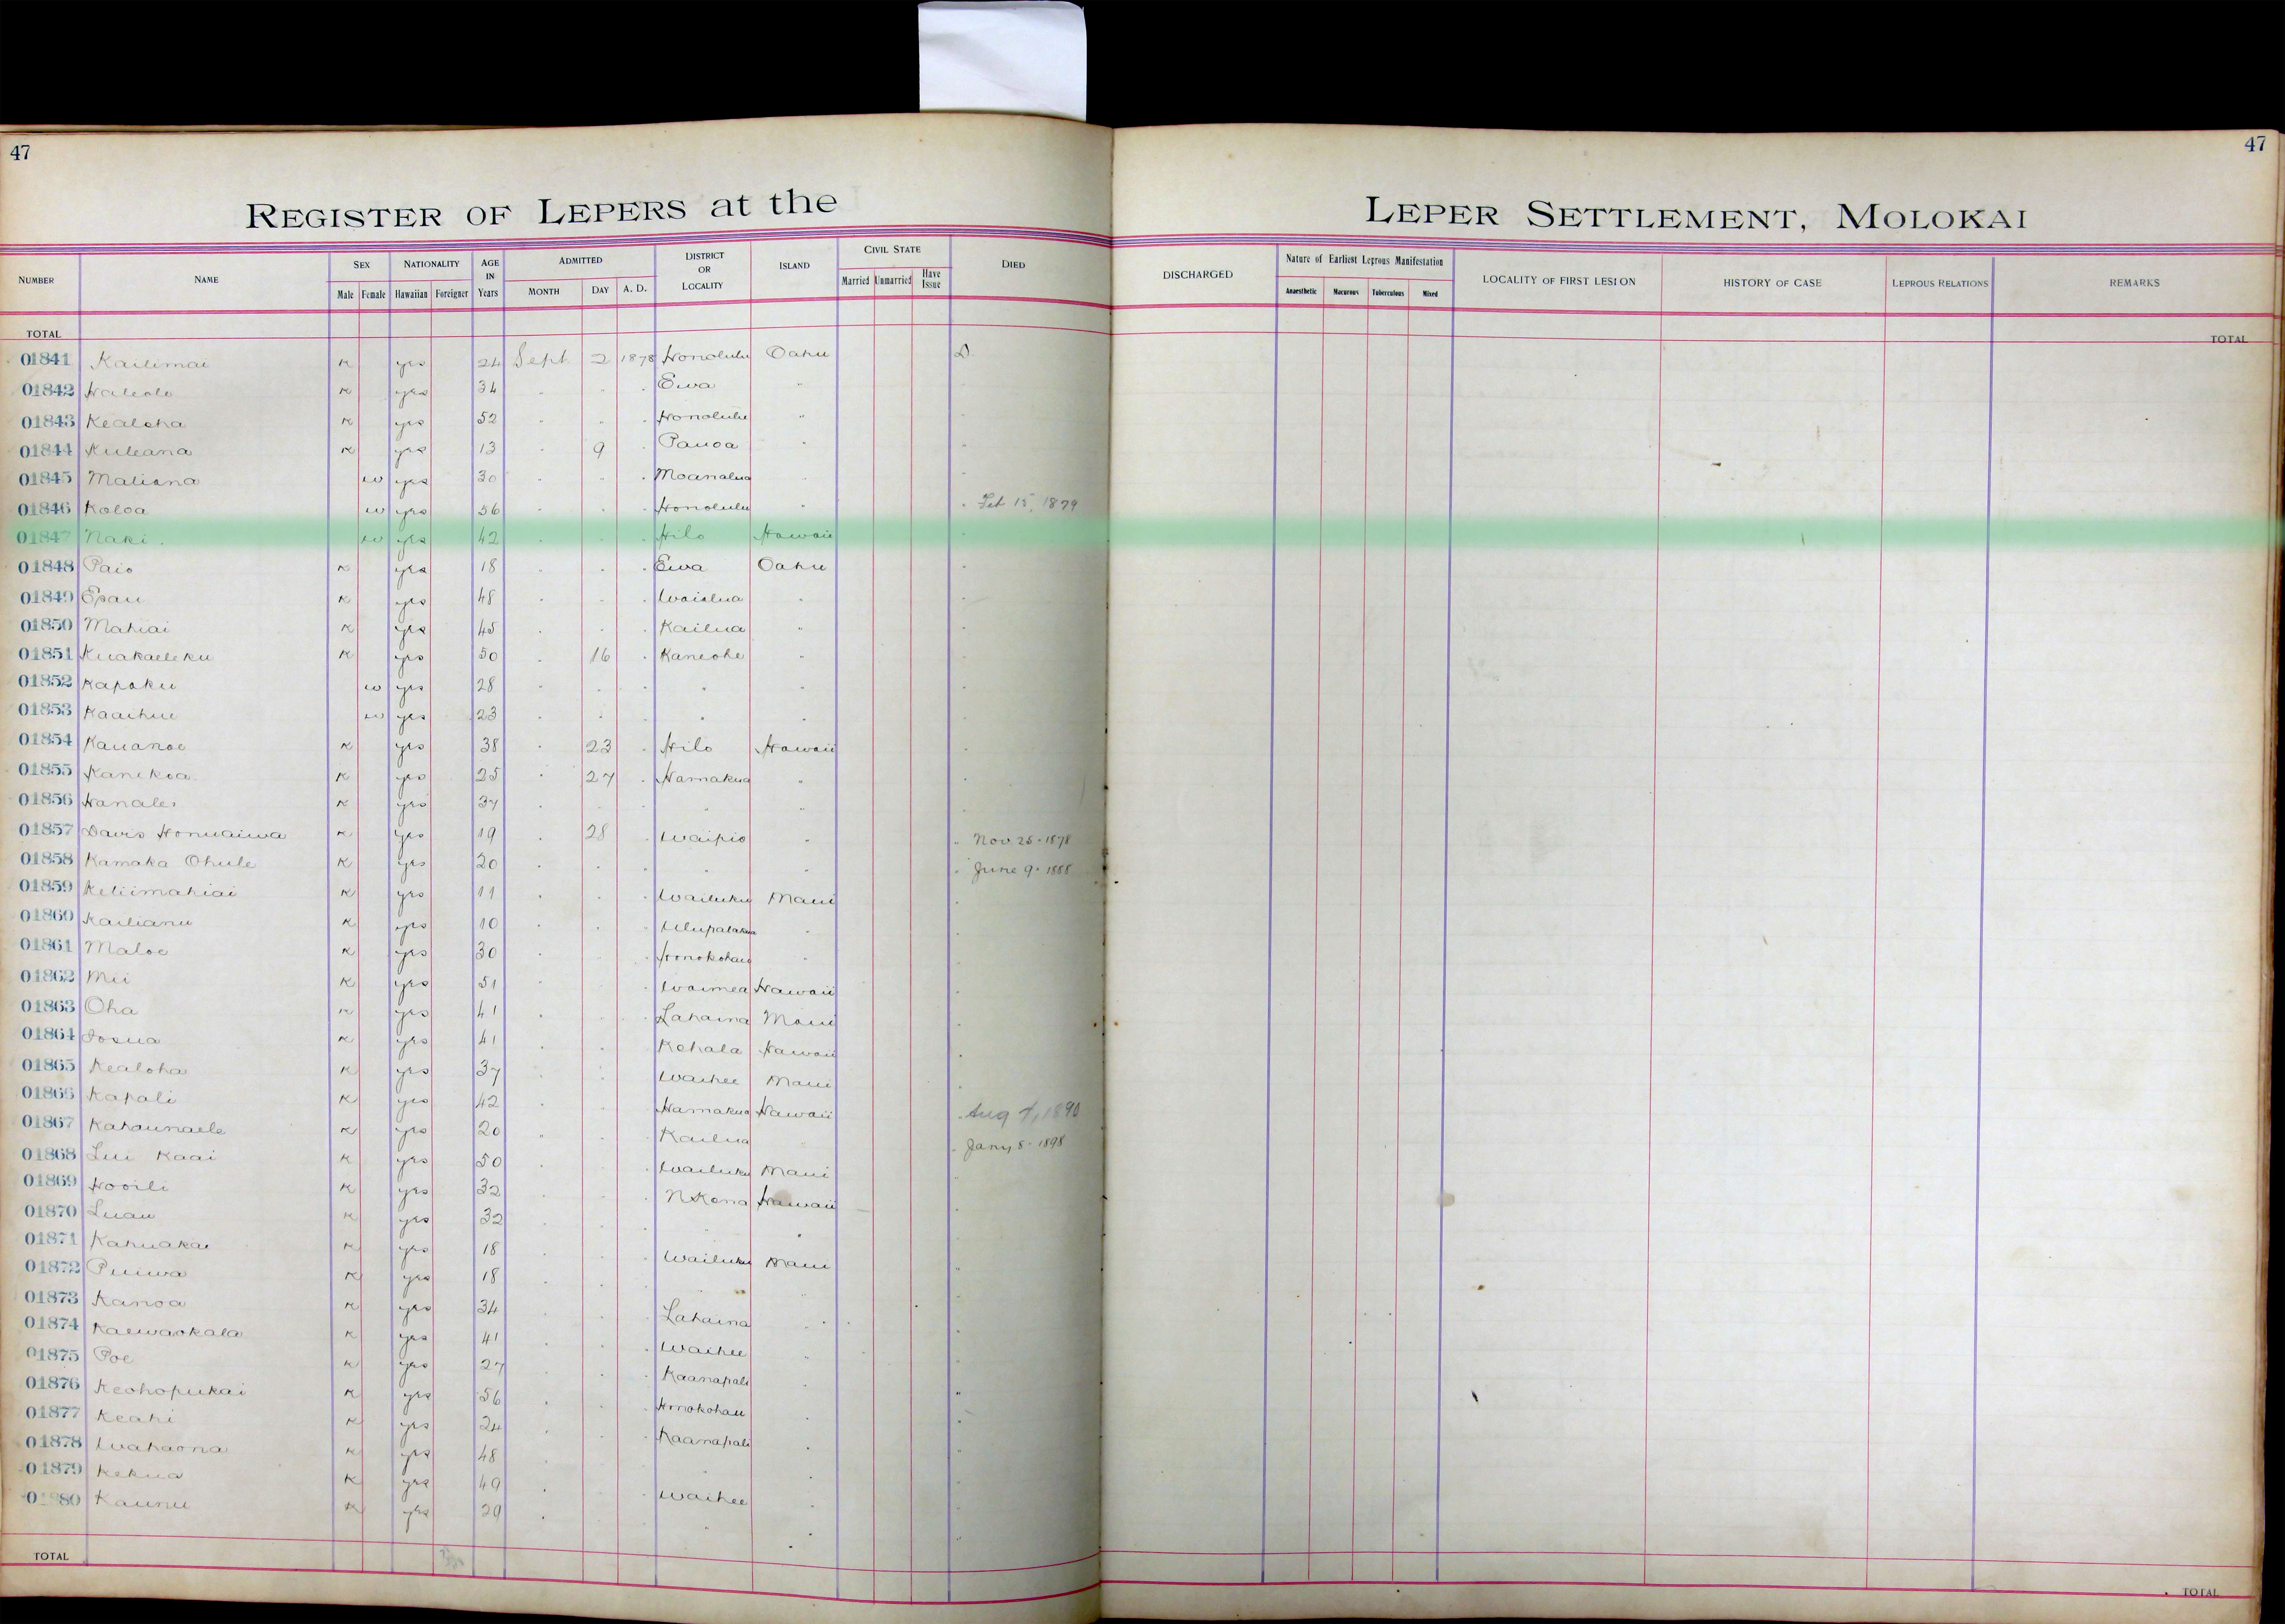 47
47
REGISTER OF LEPERS at the
LEPER SETTLEMENT, MOLOKAI
NUMBER NAME SEX Male Female NATIONALITY Hawaiian Foreigner AGE IN Years ADMITTED MONTH DAY A. D. DISTRICT OR LOCALITY ISLAND CIVIL STATE Married Unmarried Have Issue DIED
DISCHARGED Nature of Earliest Leprous Manifestation Anaesthetic Macurous Tuberculous Mixed LOCALITY OF FIRST LESION HISTORY OF CASE LEPROUS RELATIONS REMARKS
TOTAL
TOTAL
01841 Kailimai K yes 24 Sept 2 1878 Honolulu Oahu D
01842 Haleolo K yes 34 " " " Ewa "
01843 Kealoha K yes 52 " " " Honolulu "
01844 Kuleana K yes 13 " 9 " Pauoa "
01845 Maliana w yes 30 " " " Moanalua "
01846 Koloa w yes 56 " " " Honolulu " " Feb 15, 1879
01847 Naki w yes 42 " " " Hilo Hawaii "
01848 Paio K yes 18 " " " Ewa Oahu "
01849 Epau K yes 48 " " " Waialua " "
01850 Mahiai K yes 45 " " " Kailua " "
01851 Kuakaeleku K yes 50 " 16 " Kaneohe " "
01852 Kapoku w yes 28 " " " " " "
01853 Kaaihue w yes 23 " " " " " "
01854 Kauanoe K yes 38 " 23 " Hilo Hawaii "
01855 Kanekoa K yes 25 " 27 " Hamakua " "
01856 Hanalei K yes 37 " " " " " "
01857 Davis Honuaiwa K yes 19 " 28 " Waipio " " Nov 25 - 1878
01858 Kamaka Ohule K yes 20 " " " " " " June 9 - 1888
01859 Keliimahiai K yes 11 " " " Wailuku Maui "
01860 Kailianu K yes 10 " " " Ulupalakua " "
01861 Maloe K yes 30 " " " Honokohau " "
01862 Mii K yes 51 " " " Waimea Hawaii "
01863 Oha K yes 41 " " " Lahaina Maui "
01864 Iosua K yes 41 " " " Kohala Hawaii "
01865 Kealoha K yes 37 " " " Waihee Maui "
01866 Kapali K yes 42 " " " Hamakua Hawaii " Aug 7, 1890
01867 Kahaunaele K yes 20 " " " Kailua " " Jany 8 - 1898
01868 Lui Kaai K yes 50 " " " Wailuku Maui "
01869 Hooili K yes 32 " " " N Kona Hawaii "
01870 Luau K yes 32 " " " " " "
01871 Kahuakai K yes 18 " " " Wailuku Maui "
01872 Puiwa K yes 18 " " " " " "
01873 Kanoa K yes 34 " " " Lahaina " "
01874 Kaewaokala K yes 41 " " " Waihee " "
01875 Poe K yes 27 " " " Kaanapali " "
01876 Keohopukai K yes 56 " " " Honokohau " "
01877 Keahi K yes 24 " " " Kaanapali " "
01878 Wahaona K yes 48 " " " " " "
01879 Kekua K yes 49 " " " Waihee " "
01880 Kaunu K yes 29 " " " " " "
TOTAL
TOTAL